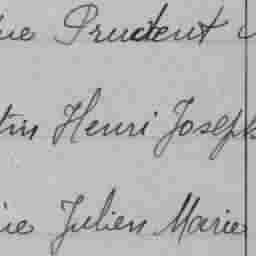 ue Prudent
tin Henri Joseph
ie Julien Marie